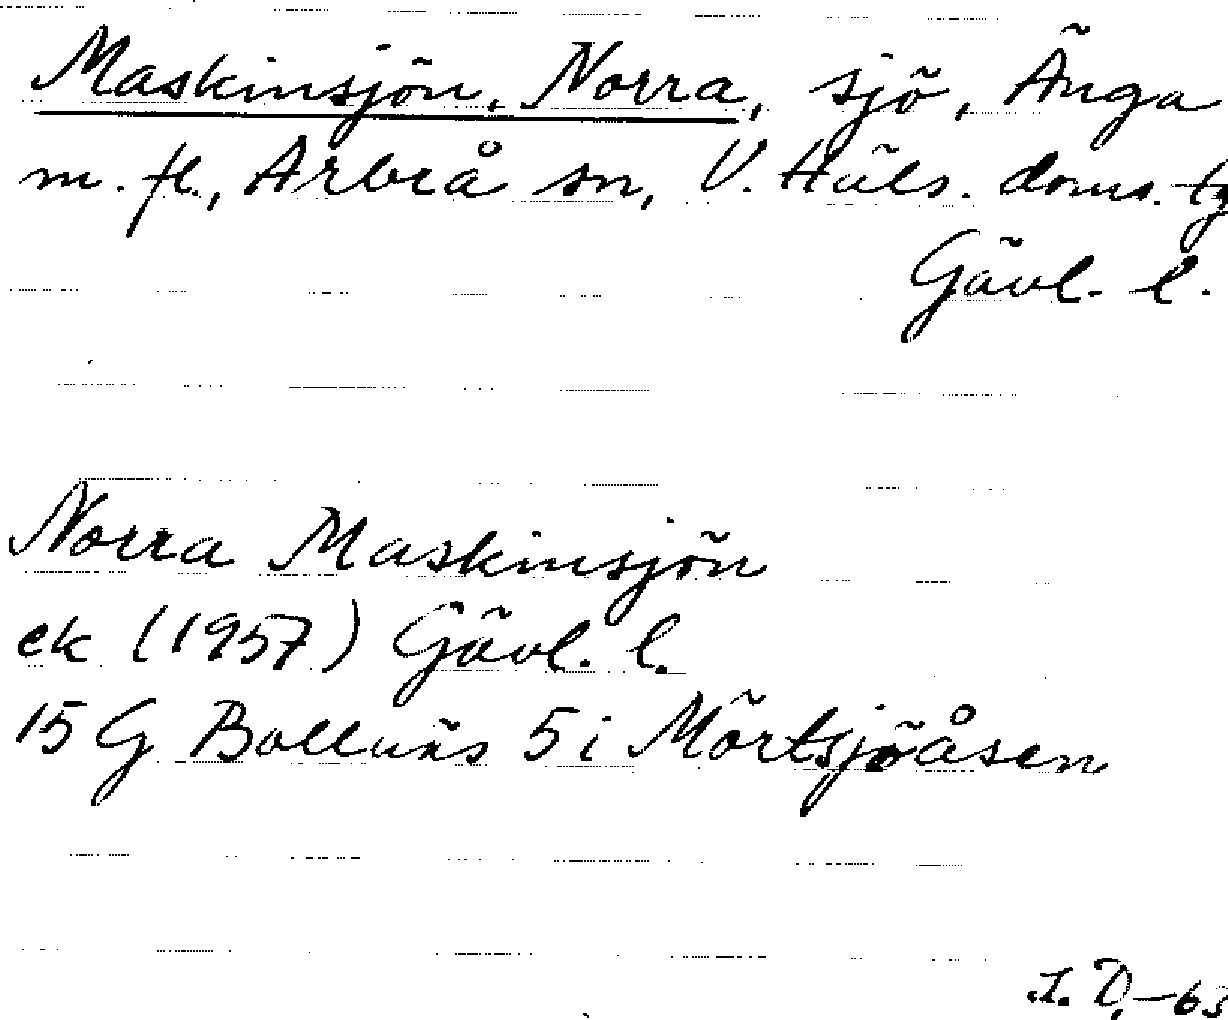 Maskinsjön, Norra, sjö, Änga
m. fl., Arbrå sn, V. Häls. doms. tg
Gävl. l.
Norra Maskinsjön
ek (1957) Gävl. l.
15 G Bollnäs 5 i Mörtsjöåsen
I. D. -63